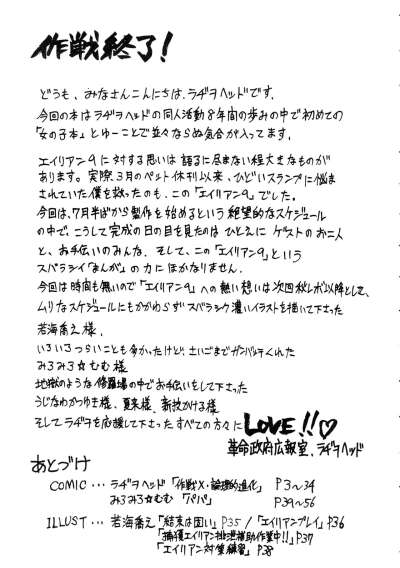 作戦終了!
どうも、みなさんこんにちは、ラヂヲヘッドです。
今回の本はラヂヲヘッドの同人活動8年間の歩みの中で初めての
「女の子本」とゆーことで並々ならぬ気合が入ってます。
エイリアン9に対する思いは語るに尽きない程大きなものが
あります。実際3月のペット休刊以来、ひどいスランプに悩ま
されていた僕を救ったのも、この「エイリアン9」でした。
今回は、7月半ばから製作を始めるという絶望的なスケジュール
の中で、こうして完成の日の目を見たのは ひとえに ゲストのお二人
と、お手伝いのみんな、そして、この「エイリアン9」という
スバラシイ「まんが」の力にほかなりません。
今回は時間も無いので「エイリアン9」への熱い想いは次回秋レボ以降として、
ムリなスケジュールにもかかわらずスバラシク濃いイラストを描いて下さった
若海喬え様、
いろいろつらいことも多かったけど、さいごまでガンバッテくれた
みろみろ☆むむ様、
地獄のような修羅場の中でお手伝いをして下さった
うじなわかつゆき様、夏来様、新技かける様
そしてラヂヲを応援して下さったすべての方々に LOVE!!♡
革命政府広報室、ラヂヲヘッド
あとづけ
COMIC … ラヂヲヘッド「作戦X・論理的進化」 P3〜34
みろみろ☆むむ「パパ」 P39〜56
ILLUST … 若海喬え「結束は固い」P35 / 「エイリアンプレイ」P36
「捕獲エイリアン排泄補助作業中!!」P37
「エイリアン対策練習」P38